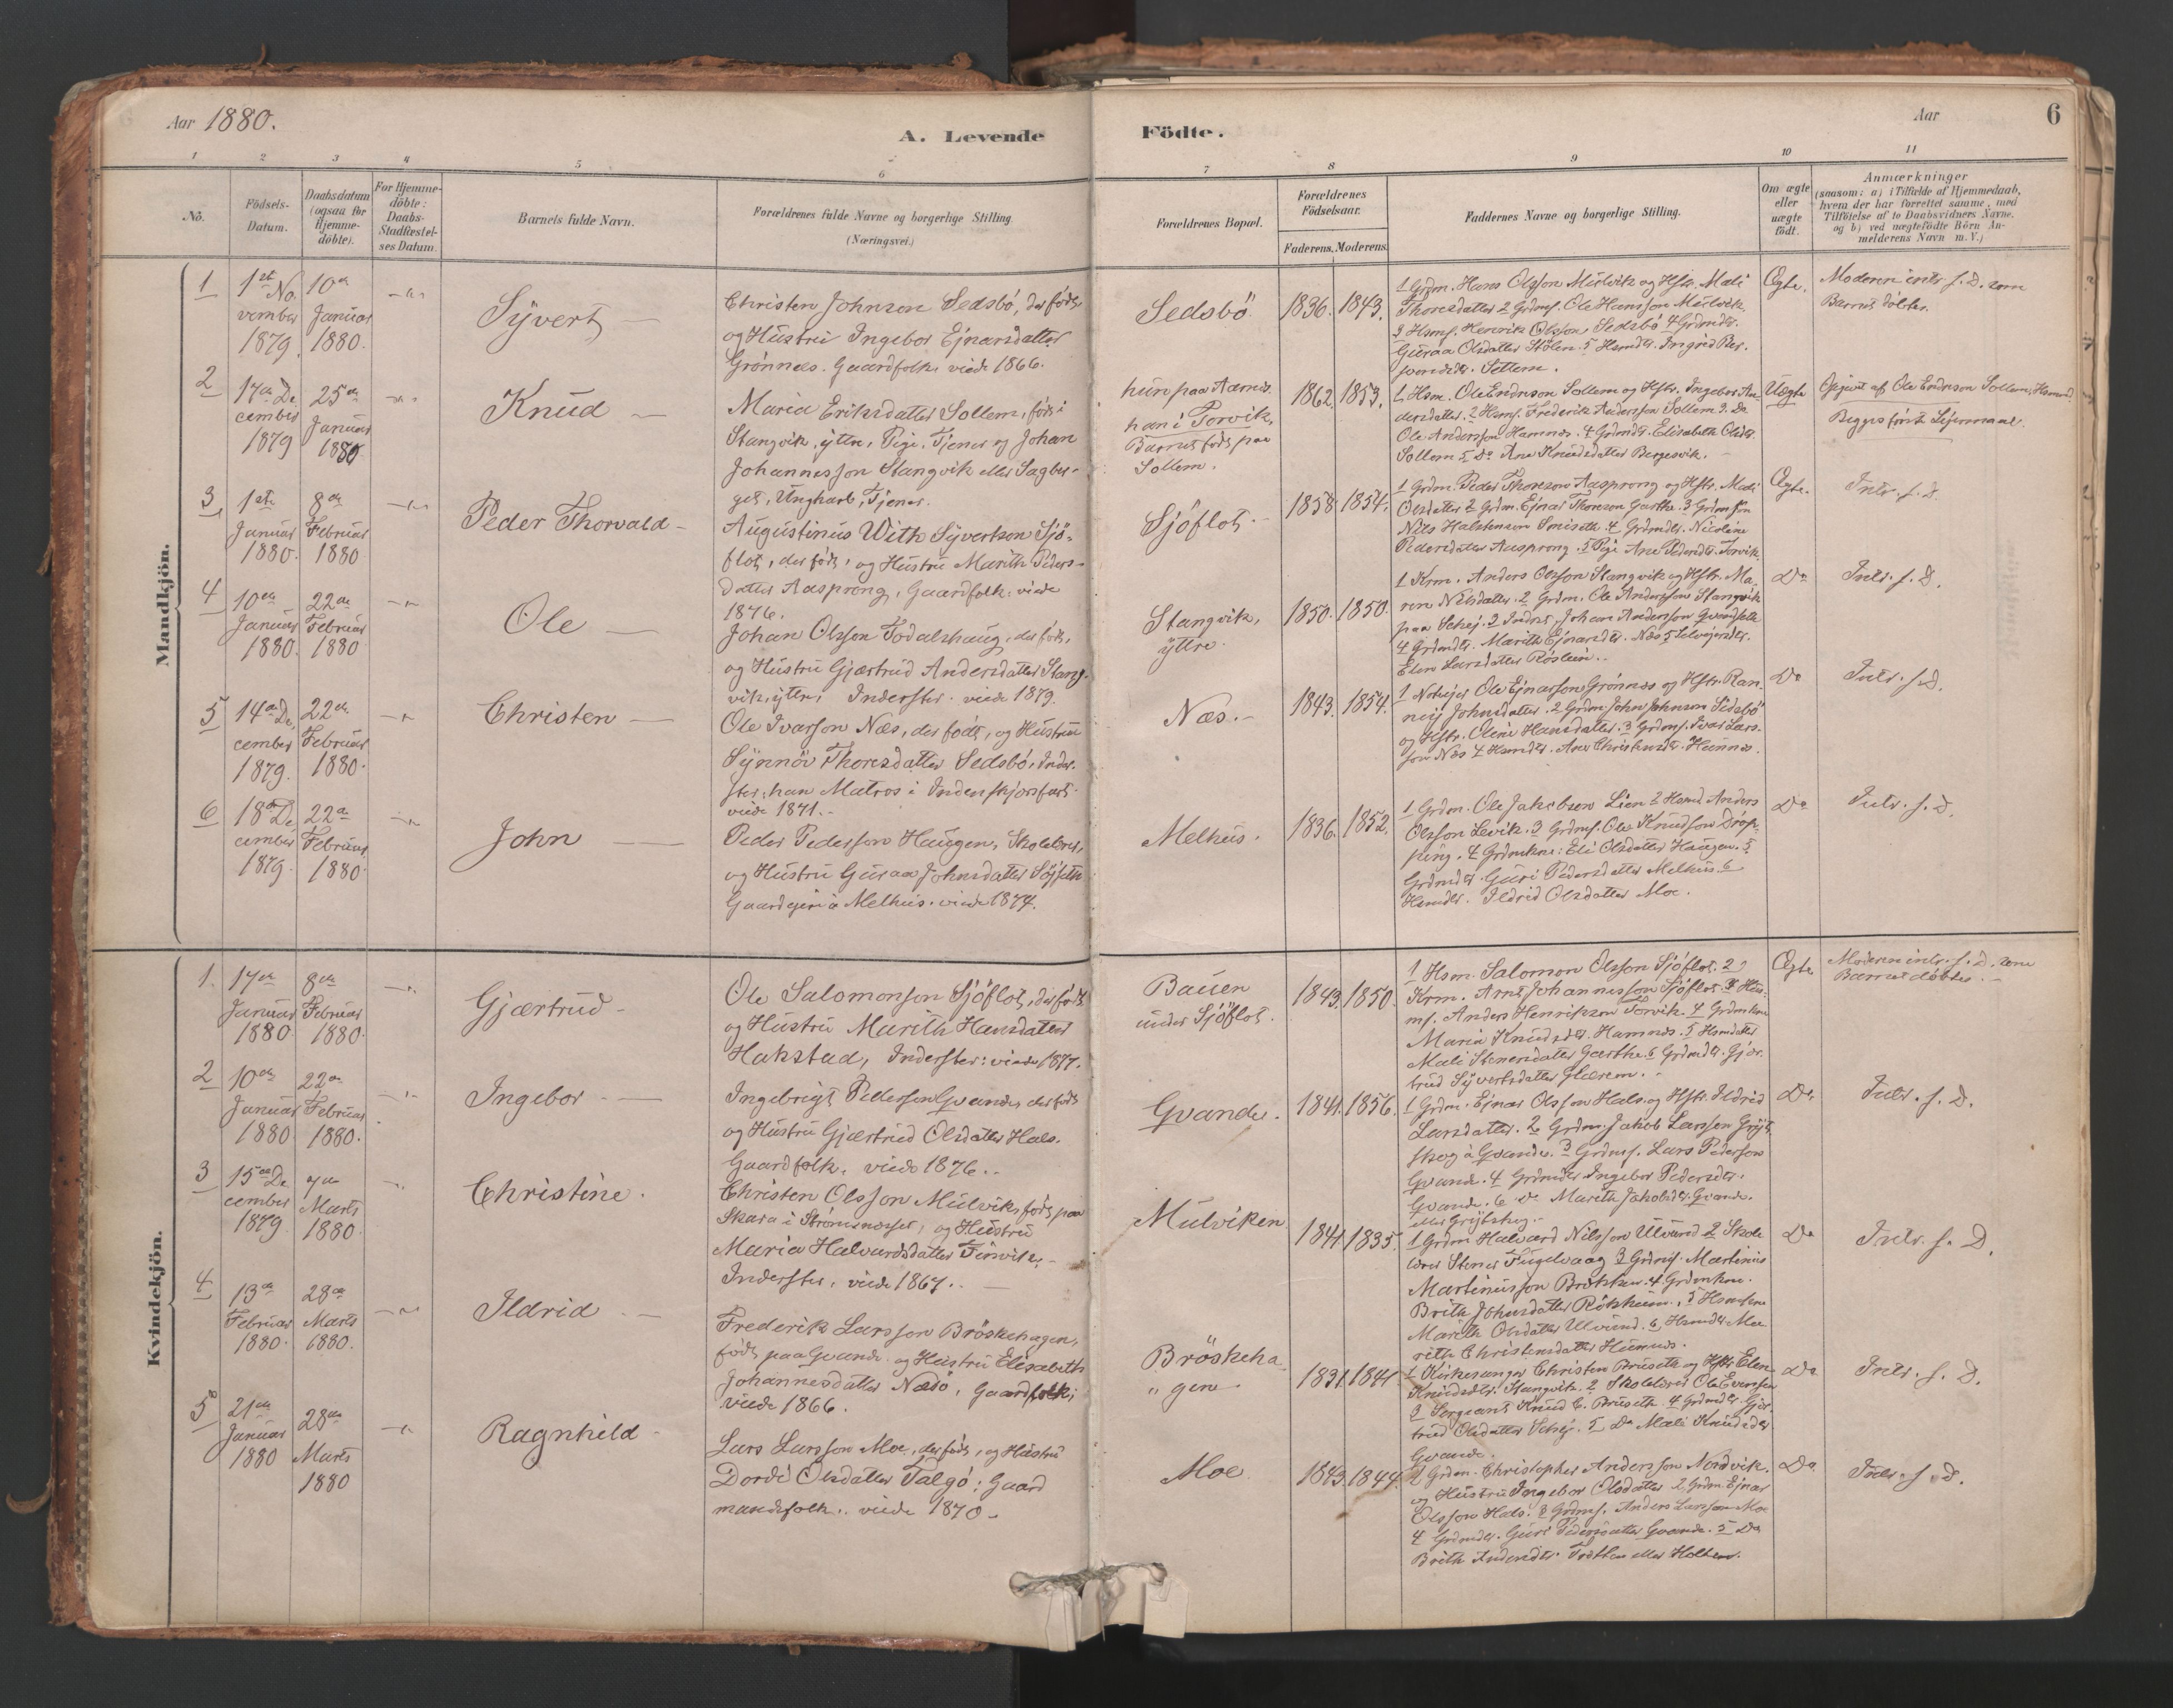 Aar 1880.
A. Levende
Födte.
Aar
6
1 2 3 4 5 6 7 8 9 10 11
Nö.
Födsels-
Datum.
Daabsdatum
(ogsaa for
Hjemme-
döbte).
For Hjemme-
döbte:
Daabs-
Stadfæstel-
ses Datum.
Barnets fulde Navn.
Forældrenes fulde Navne og borgerlige Stilling.
(Næringsvei.)
Forældrenes Bopæl.
Forældrenes
Födselsaar.
Faderens. Moderens.
Faddernes Navne og borgerlige Stilling.
Om ægte
eller
uægte
födt.
Anmærkninger
(saasom: a) i Tilfælde af Hjemmedaab,
hvem der har forrettet samme, med
Tilföielse af to Daabsvidners Navne.
og b) ved uægtefödte Börn An-
melderens Navn m. V.)
Mandkjön.
1
1st No.
vember
1879.
10de
Januar
1880.
Syvert
Christen Johnson Sedsbö, der födt,
og Hustru Ingebor Ejnarsdatter
Grönnes. Gaardfolk. viede 1866.
Sedsbö.
1836. 1843.
1 Grdm. Hans Olsson Mulvik og Hstr. Mali
Thoresdatter 2 Grdms. Ole Hansson Mulvik.
3 Hsms. Henrik Olsson Sedsbö 4 Grdmdtr.
Guraa Olsdatter Stölen. 5 Hsmdtr. Ingrid
Settem.
Ægte.
Moderen intr. s. D. som
Barnet döbtes.
2
17de De
cember
1879
25de
Januar
1880
Knud
Maria Eriksdatter Sollem, födt i
Stangvik, ytre, Pige, Tjener og Johan
Johannesson Stangvik eller Sagber-
get, Ungkarl, Tjener.
hun paa Aarnes
han i Torvik,
Barnet födt paa
Sollem.
1862. 1853.
1 Hsm. Ole Endreson Sollem og Hstr. Ingebor An-
dersdatter. 2 Hsms. Frederik Andersson Sollem 3. Do
Ole Andersson Hamnes. 4 Grdmdtr. Elisabeth Olsdtr.
Sollem 5 Do Ane Knudsdatter Bergesvik.
Uægte
Opgivet af Ole Endreson Sollem, Hsmd.
Begges först Lejermaal.
3
1ste
Januar
1880.
8de
Februar
1880
Peder Thorvald
Augustinus With Syvertson Sjö-
flot, der födt, og Hustru Marith Peders-
datter Aasprong, Gaardfolk. viede
1876.
Sjöflot.
1858 1854.
1 Grdm. Peder Thoreson Aasprong og Hstr. Mali
Olsdatter 2 Grdm. Ejnar Thoreson Garthe. 3 Grdmsön
Nils Halstenson Smiseth. 4 Grdmdtr. Nicoline
Pedersdatter Aasprong. 5 Pige Ane Pedersdtr. Torvik
Ægte.
Intr. s. D.
4
10de
Januar
1880.
22de
Februar
1880
Ole
Johan Olsson Todalshaug, der födt,
og Hustru Gjærtrud Andersdatter Stang-
vik, ytre, Inderster. viede 1879.
Stangvik,
ytre.
1850. 1850.
1 Krm. Anders Olsson Stangvik og Hstr. Ma-
ren Nilsdatter. 2 Grdm. Ole Andersson Stangvik
paa Schej. 3 Indrst. Johan Andersson
4 Grdmdtr. Marith Ejnarsdtr. Næs 5 Selvejerdtr.
Elen Larsdatter Röslein.
Do
Intr. s. D.
5
14de De
cember
1879.
22de
Februar
1880.
Christen
Ole Ivarson Næs, der födt, og Hustru
Synnöv Thoresdatter Sedsbö, Inder-
ster: han Matros i Indenskjærsfart.
viede 1871.
Næs.
1843. 1854.
1 Ole Ejnarson Grönnes og Hstr. Ran-
neij Johnsdatter. 2 Grdm. John Johnson Sedsbö
og Hstr. Oline Hansdatter. 3 Grdms. Ivar Lars-
son Næs 4 Hsmdtr. Ane Christensdtr. Hamnes.
Do
Intr. s. D.
6
18de De
cember
1879.
22de
Februar
1880
John
Peder Pedersson Haugen, Skolelærer,
og Hustru Guraa Johnsdatter Söjseth
Gaardejere i Melhus. viede 1874.
Melhus.
1836. 1852.
1 Grdm. Ole Jakobson Lien 2 Hsmd Anders
Olsson Levik. 3 Grdms. Ole Knudson Dröp-
ping. 4 Grdmkone: Eli Olsdatter Haugen. 5
Grdmdtr. Guri Pedersdatter Melhus. 6
Hsmdtr. Ildrid Olsdatter Moe.
Do
Intr. s. D.
Kvindekjön.
1.
17de
Januar
1880
8de
Februar
1880.
Gjærtrud
Ole Salomonson Sjöflot, der födt
og Hustru Marith Hansdatter
Hakstad, Inderster: viede 1877.
Bauen
under Sjöflot.
1843. 1850.
1 Hsm. Salomon Olsson Sjöflot. 2
Krm. Arnt Johannesson Sjöflot. 3 Hus-
ms. Anders Henrikson Torvik. 4 Grdmkone
Maria Knudsdtr. Hamnes. 5 Hsmdatter
Mali Stenersdatter Garthe. 6 Grdmdtr. Gjær-
trud Syvertsdatter Glærem.
Ægte
Moderen intr. s. D. som
Barnet döbtes.
2
10de
Januar
1880
22de
Februar
1880.
Ingebor
Ingebrigt Pederson Qvande, der födt
og Hustru Gjærtrud Olsdatter Hals.
Gaardfolk. viede 1876.
Qvande.
1841. 1856.
1 Grdm. Ejnar Olsson Hals og Hstr. Ildrid
Larsdatter. 2 Grdm. Jakob Larsson Gryt-
skog à Qvande. 3 Grdms. Lars Pederson
Qvande. 4 Grdmdtr Ingebor Pedersdtr.
Qvande. 6 Do Marith Jakobsdtr. Qvande.
eller Grytskog.
Do
Intr. s. D.
3
15de De
cember
1879.
7de
Marts
1880
Christine.
Christen Olsson Mulvik, födt paa
Skara i Strömsneset, og Hustru
Maria Halvardsdatter
Inderster, viede 1867.
Mulviken
1841. 1835.
1 Grdm Halvard Nilsson Ulvund 2 Skole
lærer Stener Fugelvaag 3 Grdms. Martinus
Martinusson Brekken. 4 Grdmkone.
Brith Johnsdatter Rökkum. 5 Hsmkone
Marith Olsdatter Ulvund. 6 Hsmdtr Ma-
rith Christensdatter Hamnes.
Do
Intr. s. D.
4
13de
Februar
1880.
28de
Marts
1880.
Ildrid
Frederik Larsson Bröskehagen,
födt paa Qvande. og Hustru Elisabeth
Johannesdatter Næsö, Gaardfolk;
viede 1866.
Bröskeha
" gen
1831. 1841.
1 Kirkesanger Christen Bruseth og Hstr. Elen
Knudsdtr. Stangvik. 2 Skolelærer Ole Evensen
3 Sergeant Knud C. Bruseth. 4 Grdmdtr. Gjær-
trud Olsdatter Schej. 5 Do Mali Knudsdtr
Qvande.
Do
Intr. s. D.
5
21de
Januar
1880
28de
Marts
1880
Ragnhild
Lars Larsson Moe, der födt, og Hustru
Dordi Olsdatter Talgö: Gaard
mandsfolk. viede 1870.
Moe
1843. 1844.
1 Grdm. Christopher Andersson Nordvik.
og Hustru Ingebor Olsdatter 2 Grdm. Ejnar
Olsson Hals. 3 Grdms. Anders Larsson Moe
4 Grdmdtr. Guri Pedersdatter Qvande. 5 Do
Brith Andersdtr. Tretten eller Holten.
Do
Intr. s. D.